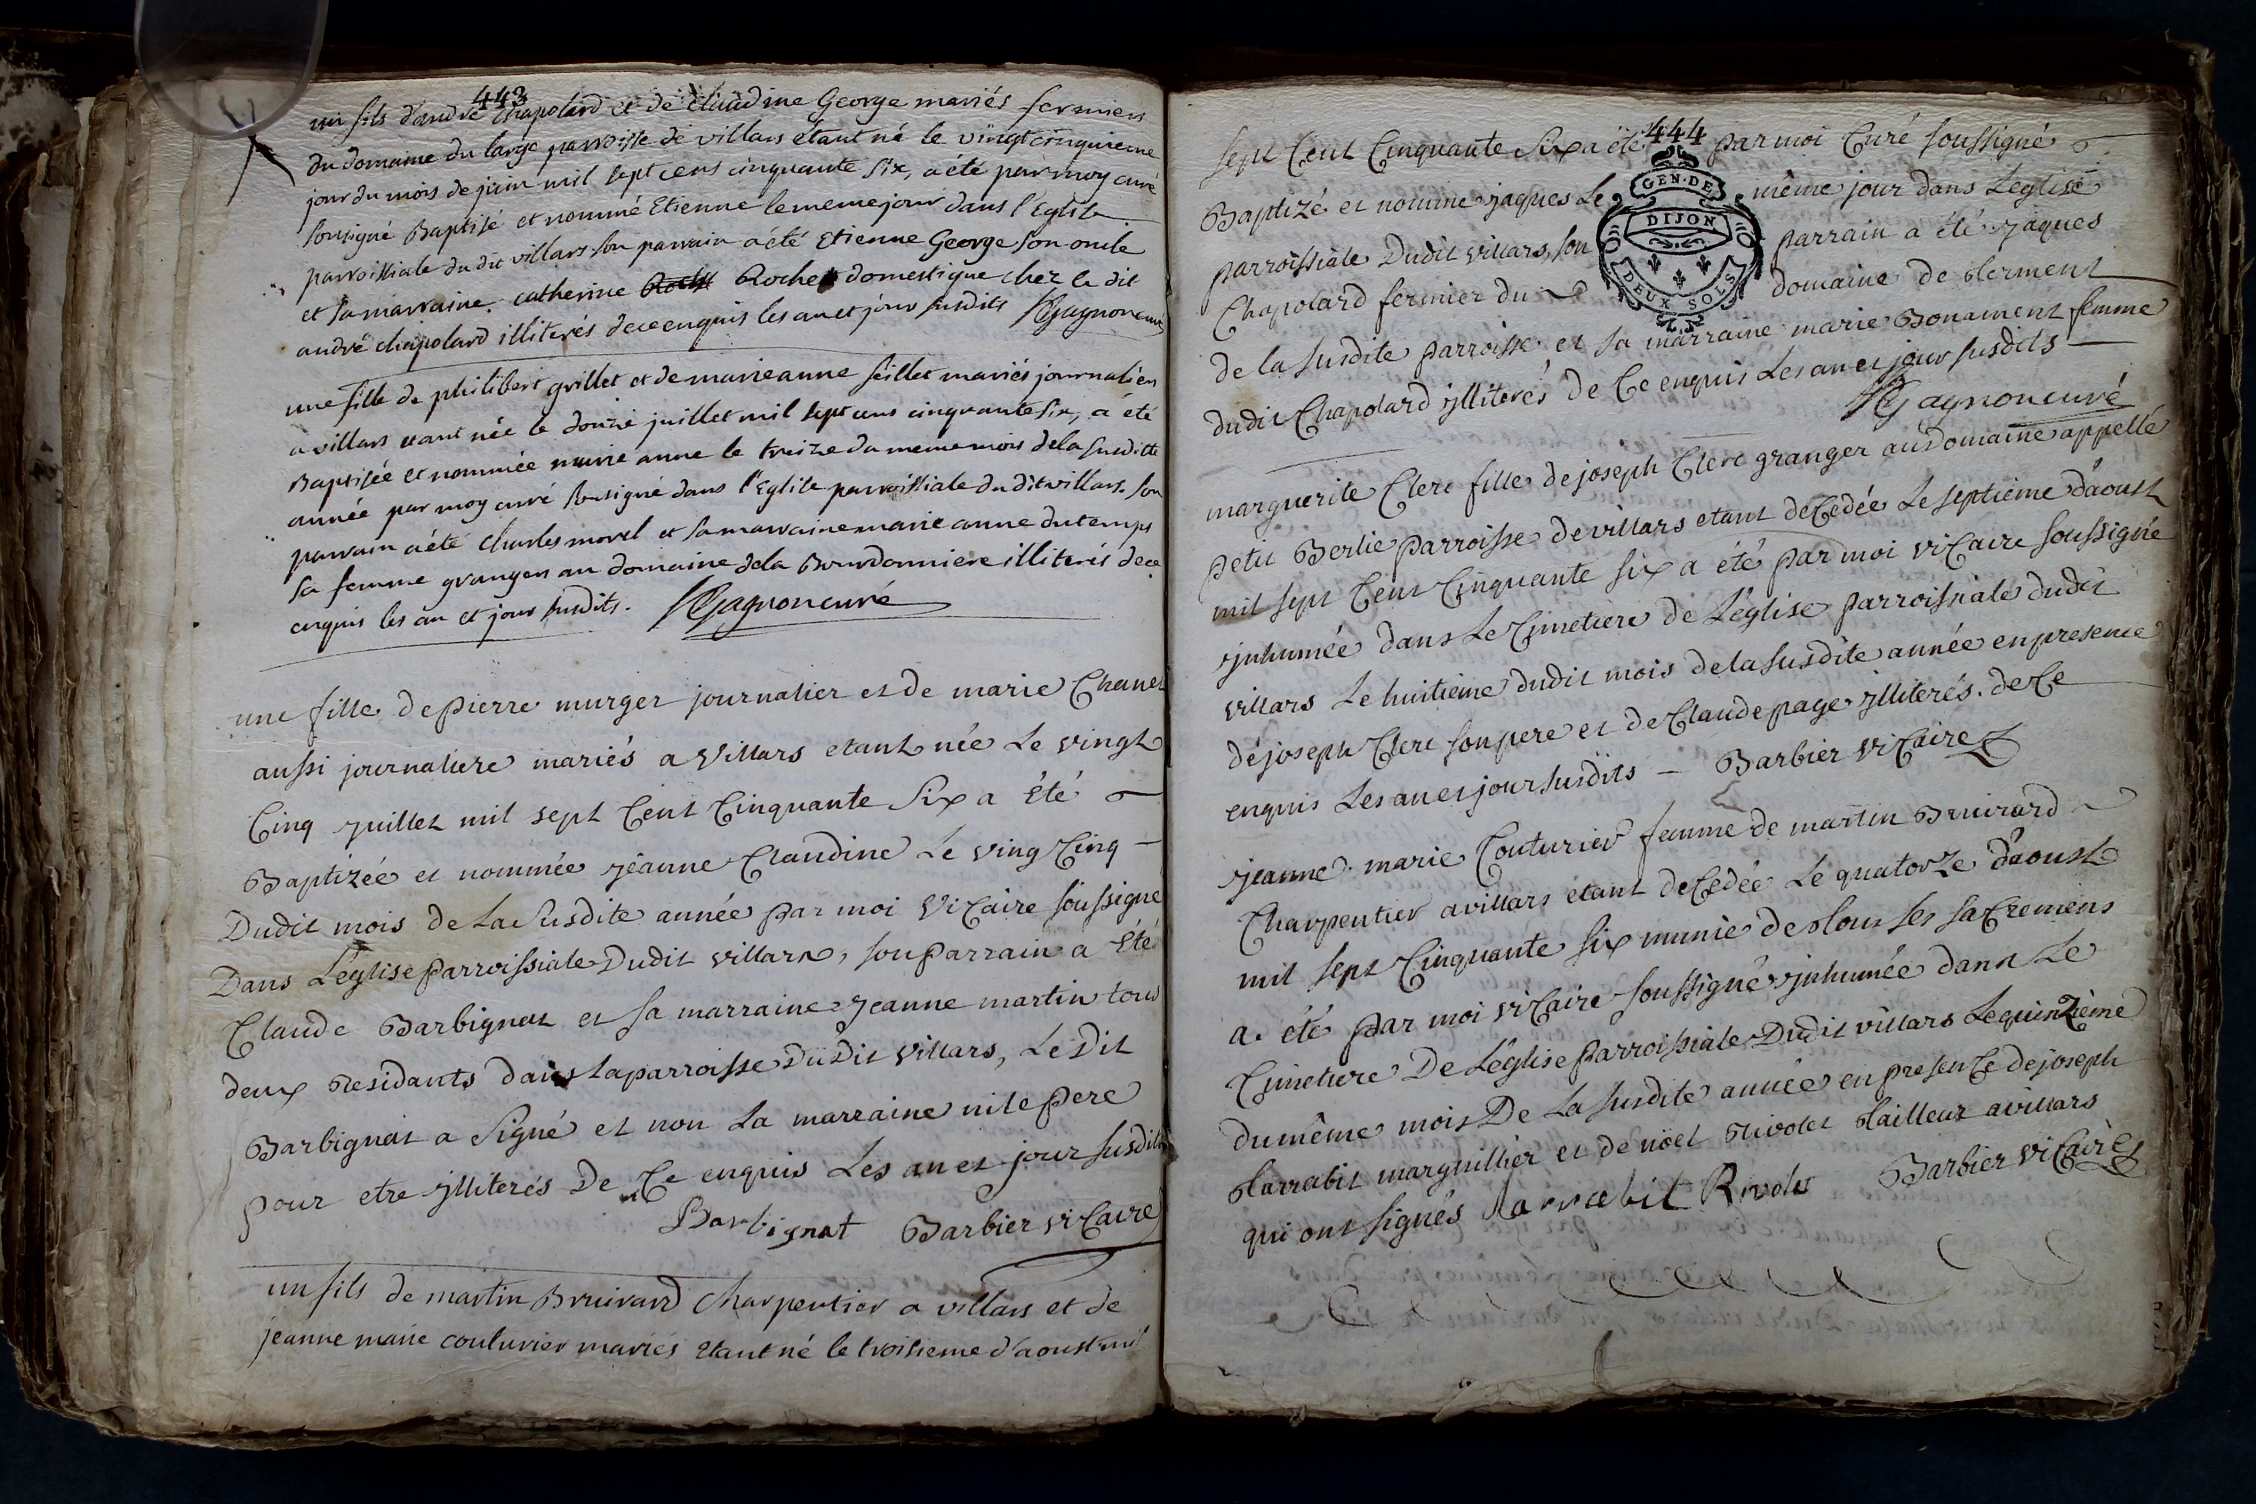 443
un fils d'andré Chapolard et de claudine George mariés fermiers
du domaine du large parroisse de villars étant né le vingt cinquieme
jour du mois de juin mil sept cens cinquante six, a été par moy curé
sousigné Baptisé et nommé Etienne le meme jour dans l'Eglise
parroissiale du dit villars son parrain a été Etienne George son oncle
et sa marraine catherine Roche domestique chez le dit
andré chapolard illiterés de ce enquis les an et jour susdits Gagnon curé
une fille de philibert grillet et de marieanne feillet mariés journaliers
a villars etant née le douze juillet mil sept cens cinquante six, a été
Baptisée et nommée marie anne le treize du meme mois de la susditte
année par moy curé sousigné dans l'Eglise parroissiale du dit villars. son
parrain a été charles morel et sa marraine marie anne dutemps
sa femme grangers au domaine de la Bourdonniere illiterés de ce
enquis les an et jour susdits. Gagnon curé
une fille de pierre murger journalier et de marie Chanel
aussi journaliere mariés a Villars etant née Le vingt
Cinq juillet mil sept Cent Cinquante Six a été
Baptizée et nommée jeanne Claudine Le ving Cinq
Dudit mois de La Susdite année par moi ViCaire soussigné
Dans L'église parroissiale Dudit villars, son parrain a été
Claude Barbignat et sa marraine jeanne martin tous
deux Residants dans la parroisse Dudit Villars, Le Dit
Barbignat a Signé et non La marraine ni le pere
pour etre jlliterés De Ce enquis Les an et jour susdits
Barbignat Barbier viCaire
un fils de martin Bruirard charpentier a villars et de
jeanne marie couturier mariés etant né le troisieme d'aoust mil
444
sept Cent Cinquante Six a été par moi Curé soussigné
GEN. DE
DIJON
DEUX SOLS
Baptizé et nommé jaques Le même jour dans L'eglise
parroissiale Dudit villars, son parrain a été jaques
Chapolard fermier du domaine de
de la susdite parroisse et sa marraine marie Bonament femme
dudit Chapolard jlliterés de Ce enquis Les an et jour susdits
Gagnon curé
marguerite Clerc fille de joseph Clerc granger au domaine appellé
petit Berlie parroisse de villars etant deCedée Le septieme d'aoust
mil sept Cent Cinquante six a été par moi viCaire soussigné
jnhumée dans Le Cimetiere de L'église parroissiale dudit
villars Le huitieme dudit mois de la susdite année en presence
de joseph Clerc son pere et de Claude page jlliterés. de Ce
enquis Les an et jour susdits Barbier viCaire
jeanne marie Couturier femme de martin Bruirard
Charpentier a villars étant deCedée Le quatorze d'aoust
mil sept Cinquante six munie de tous les saCremens
a été par moi viCaire soussigné jnhumée dans Le
Cimetiere De L'église parroissiale Dudit villars Le quinzieme
du même mois De La susdite année en presenCe de joseph
tarrabit marguillier et de noël Rivolet tailleur a villars
qui ont signés tarrabit Rivolet Barbier viCaire